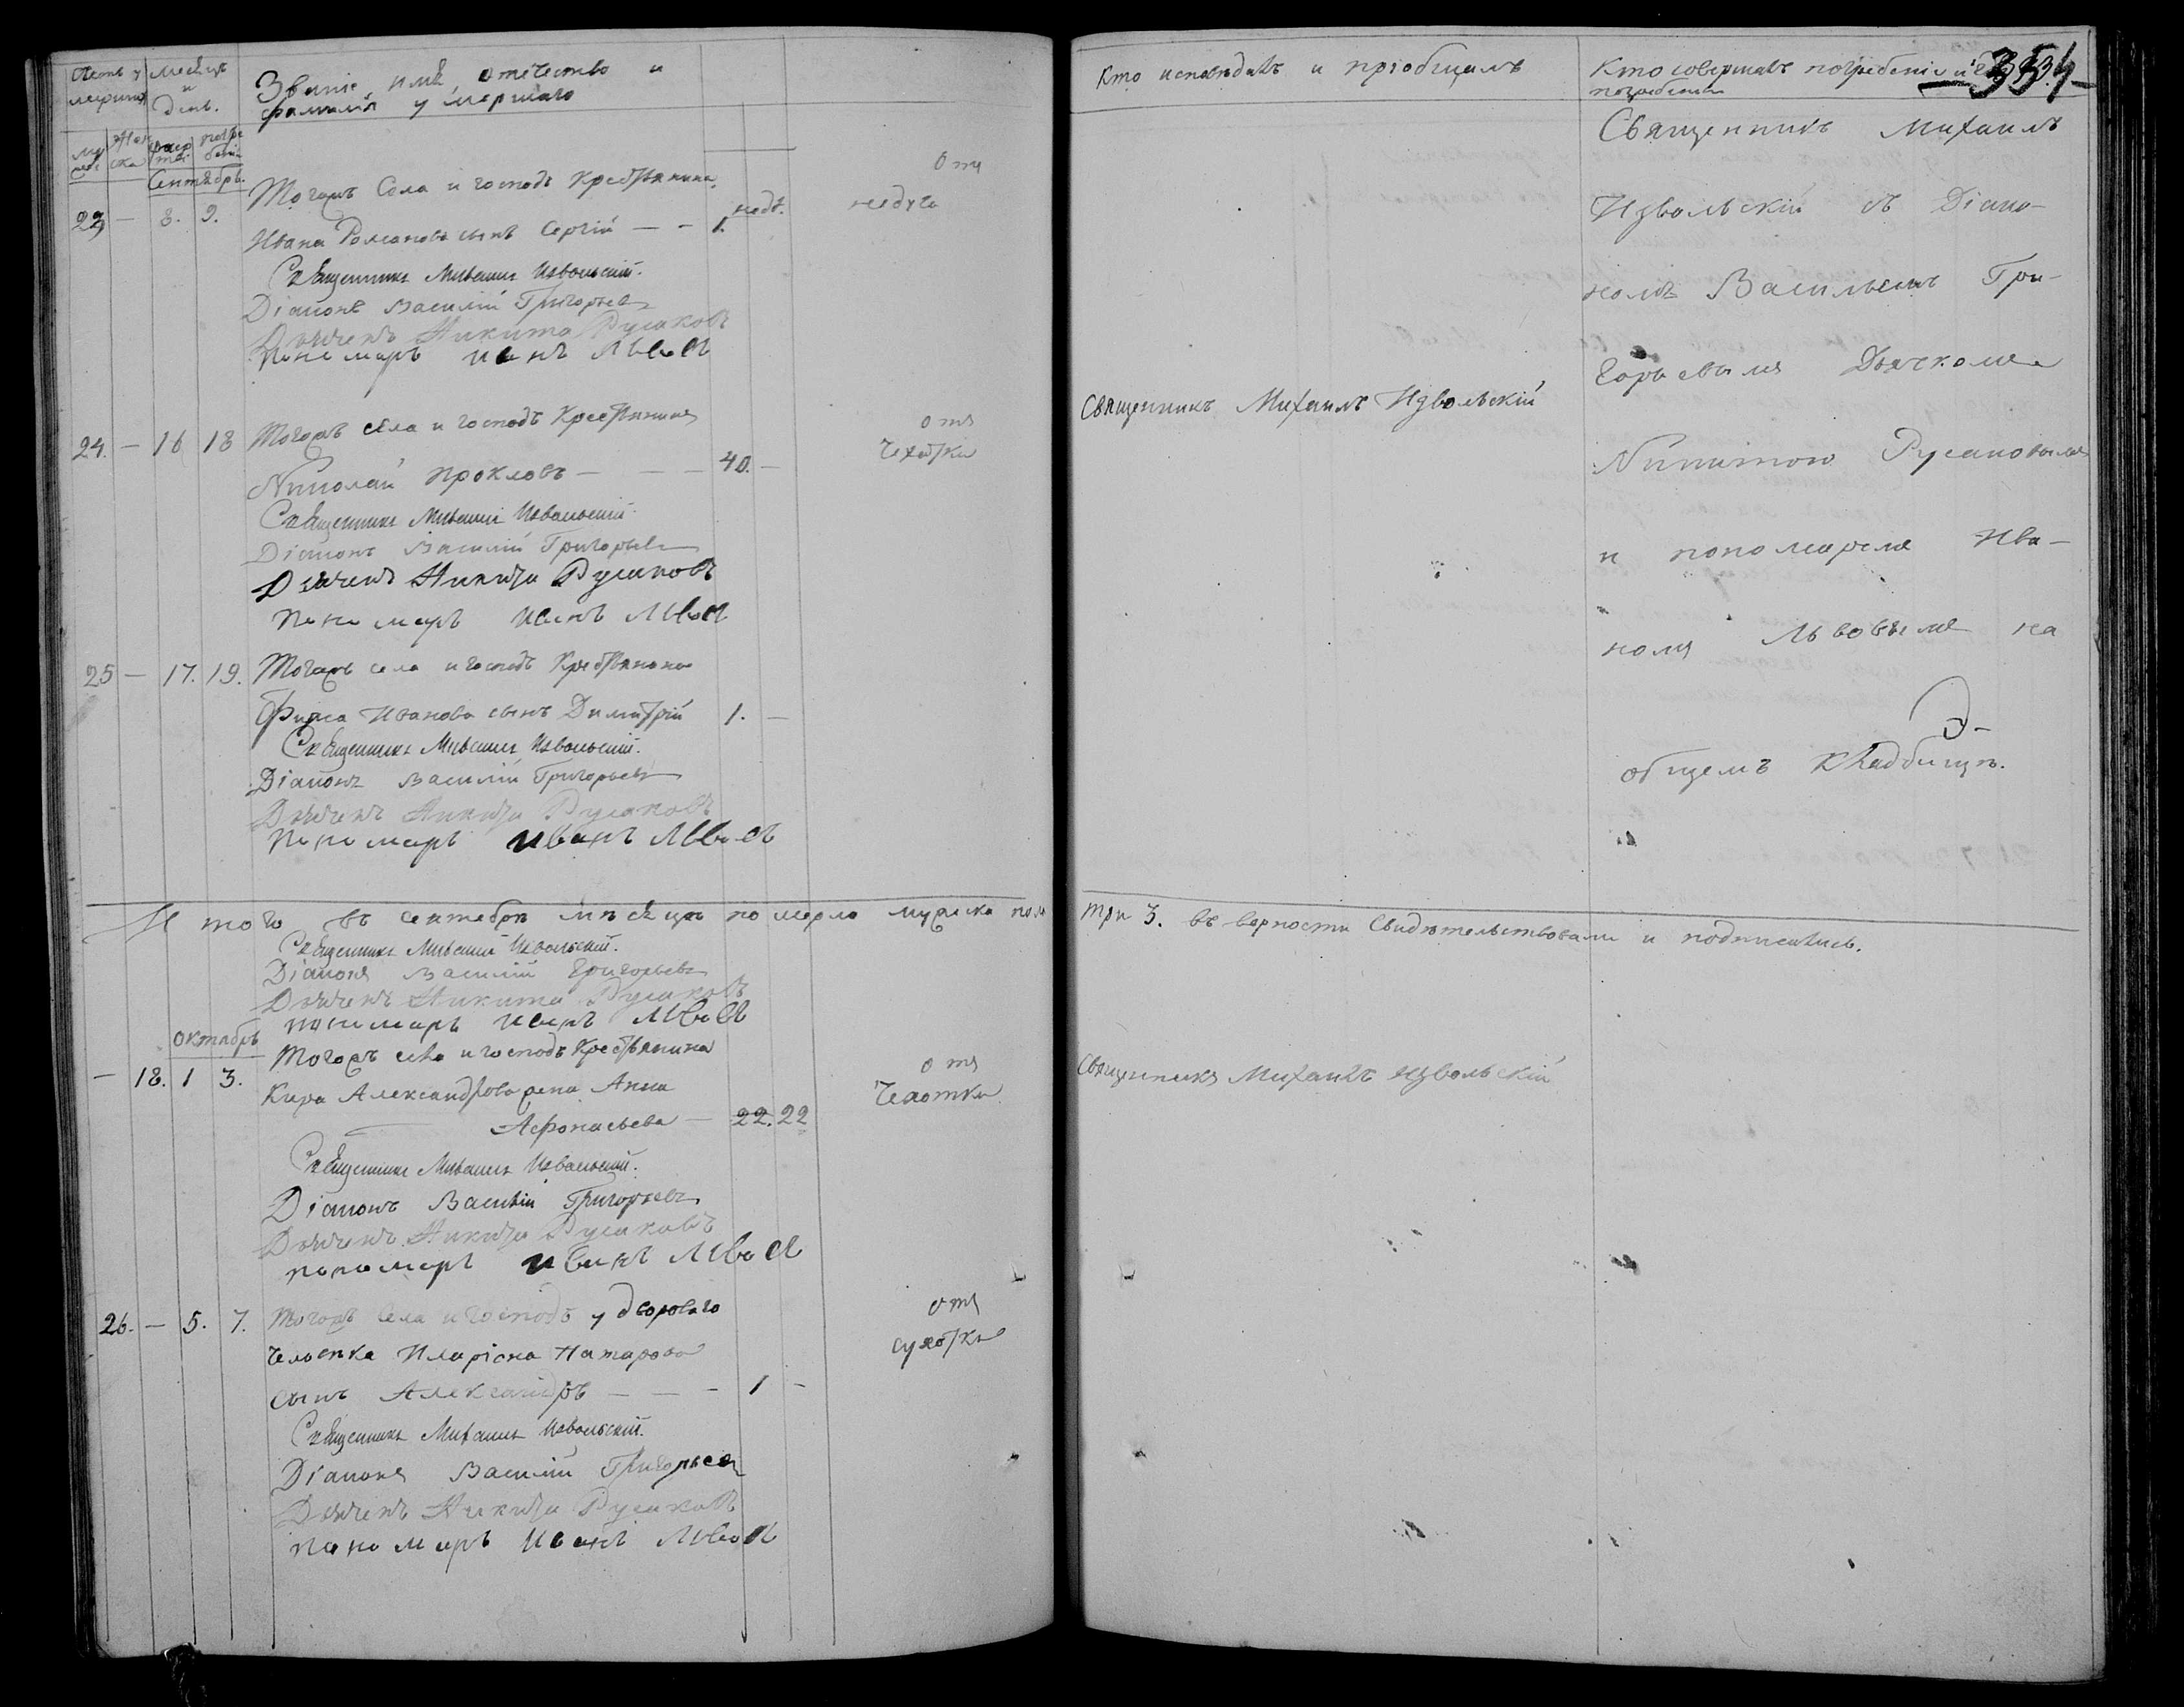 Мѣсяцъ и день.
Званіе, имя, отчество и
фамилія умершаго
Сентябрь.
23 — 8. 9. Тогожъ Села и господъ Крестьянина
Ивана Романова сынъ Сергій — — 1. недѣ.
отъ
недуга
Священникъ Михаилъ Извольскій.
Діаконъ Василій Григорьевъ
Дьячекъ Никита Русаковъ
Пономарь Иванъ Львовъ
24. — 16 18 Тогожъ села и господъ Крестьянинъ
Николай Прокловъ — — — 40. —
отъ
Чехотки
Священникъ Михаилъ Извольскій.
Діаконъ Василій Григорьевъ
Дьячекъ Никита Русаковъ
Пономарь Иванъ Львовъ
25 — 17. 19. Тогожъ села и господъ Крестьянина
Фирса Иванова сынъ Димитрій 1. —
Священникъ Михаилъ Извольскій.
Діаконъ Василій Григорьевъ
Дьячекъ Никита Русаковъ
Пономарь Иванъ Львовъ
И того въ сентябрѣ мѣсяцѣ померло мужска пола
Священникъ Михаилъ Извольскій.
Діаконъ Василій Григорьевъ
Дьячекъ Никита Русаковъ
пономарь Иванъ Львовъ
октябрь
— 18. 1 3. Тогожъ села и господъ Крестьянина
Кира Александрова жена Анна
Афонасьева — 22. 22
отъ
Чехотки
Священникъ Михаилъ Извольскій.
Діаконъ Василій Григорьевъ
Дьячекъ Никита Русаковъ
пономарь Иванъ Львовъ
26. — 5. 7. Тогожъ села и господъ у двороваго
человека Иларіона Назарова
сынъ Александръ — — — 1 —
отъ
сухотки
Священникъ Михаилъ Извольскій.
Діаконъ Василій Григорьевъ
Дьячекъ Никита Русаковъ
пономарь Иванъ Львовъ
Кто исповѣдалъ и пріобщалъ
Кто совершалъ погребеніе и гдѣ
погребены
Священникъ Михаилъ Извольскій
Священникъ Михаилъ
Извольскій съ Діако-
номъ Васильемъ Гри-
горьевымъ Дьячкомъ
Никитою Русаковымъ
и пономаремъ Ива-
номъ Львовымъ на
общемъ кладбищѣ.
три 3. въ верности свидѣтельствовали и подписались.
Священникъ Михаилъ Извольскій